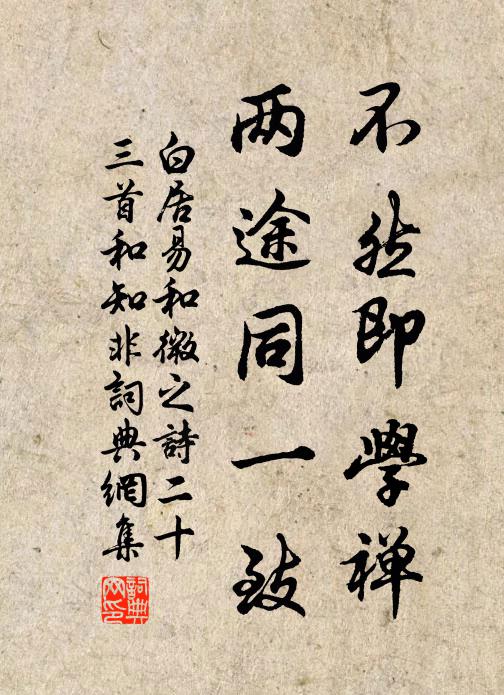 不然即學禅
两途同一致
白居易和微之詩二十
三首和知非詞典網集